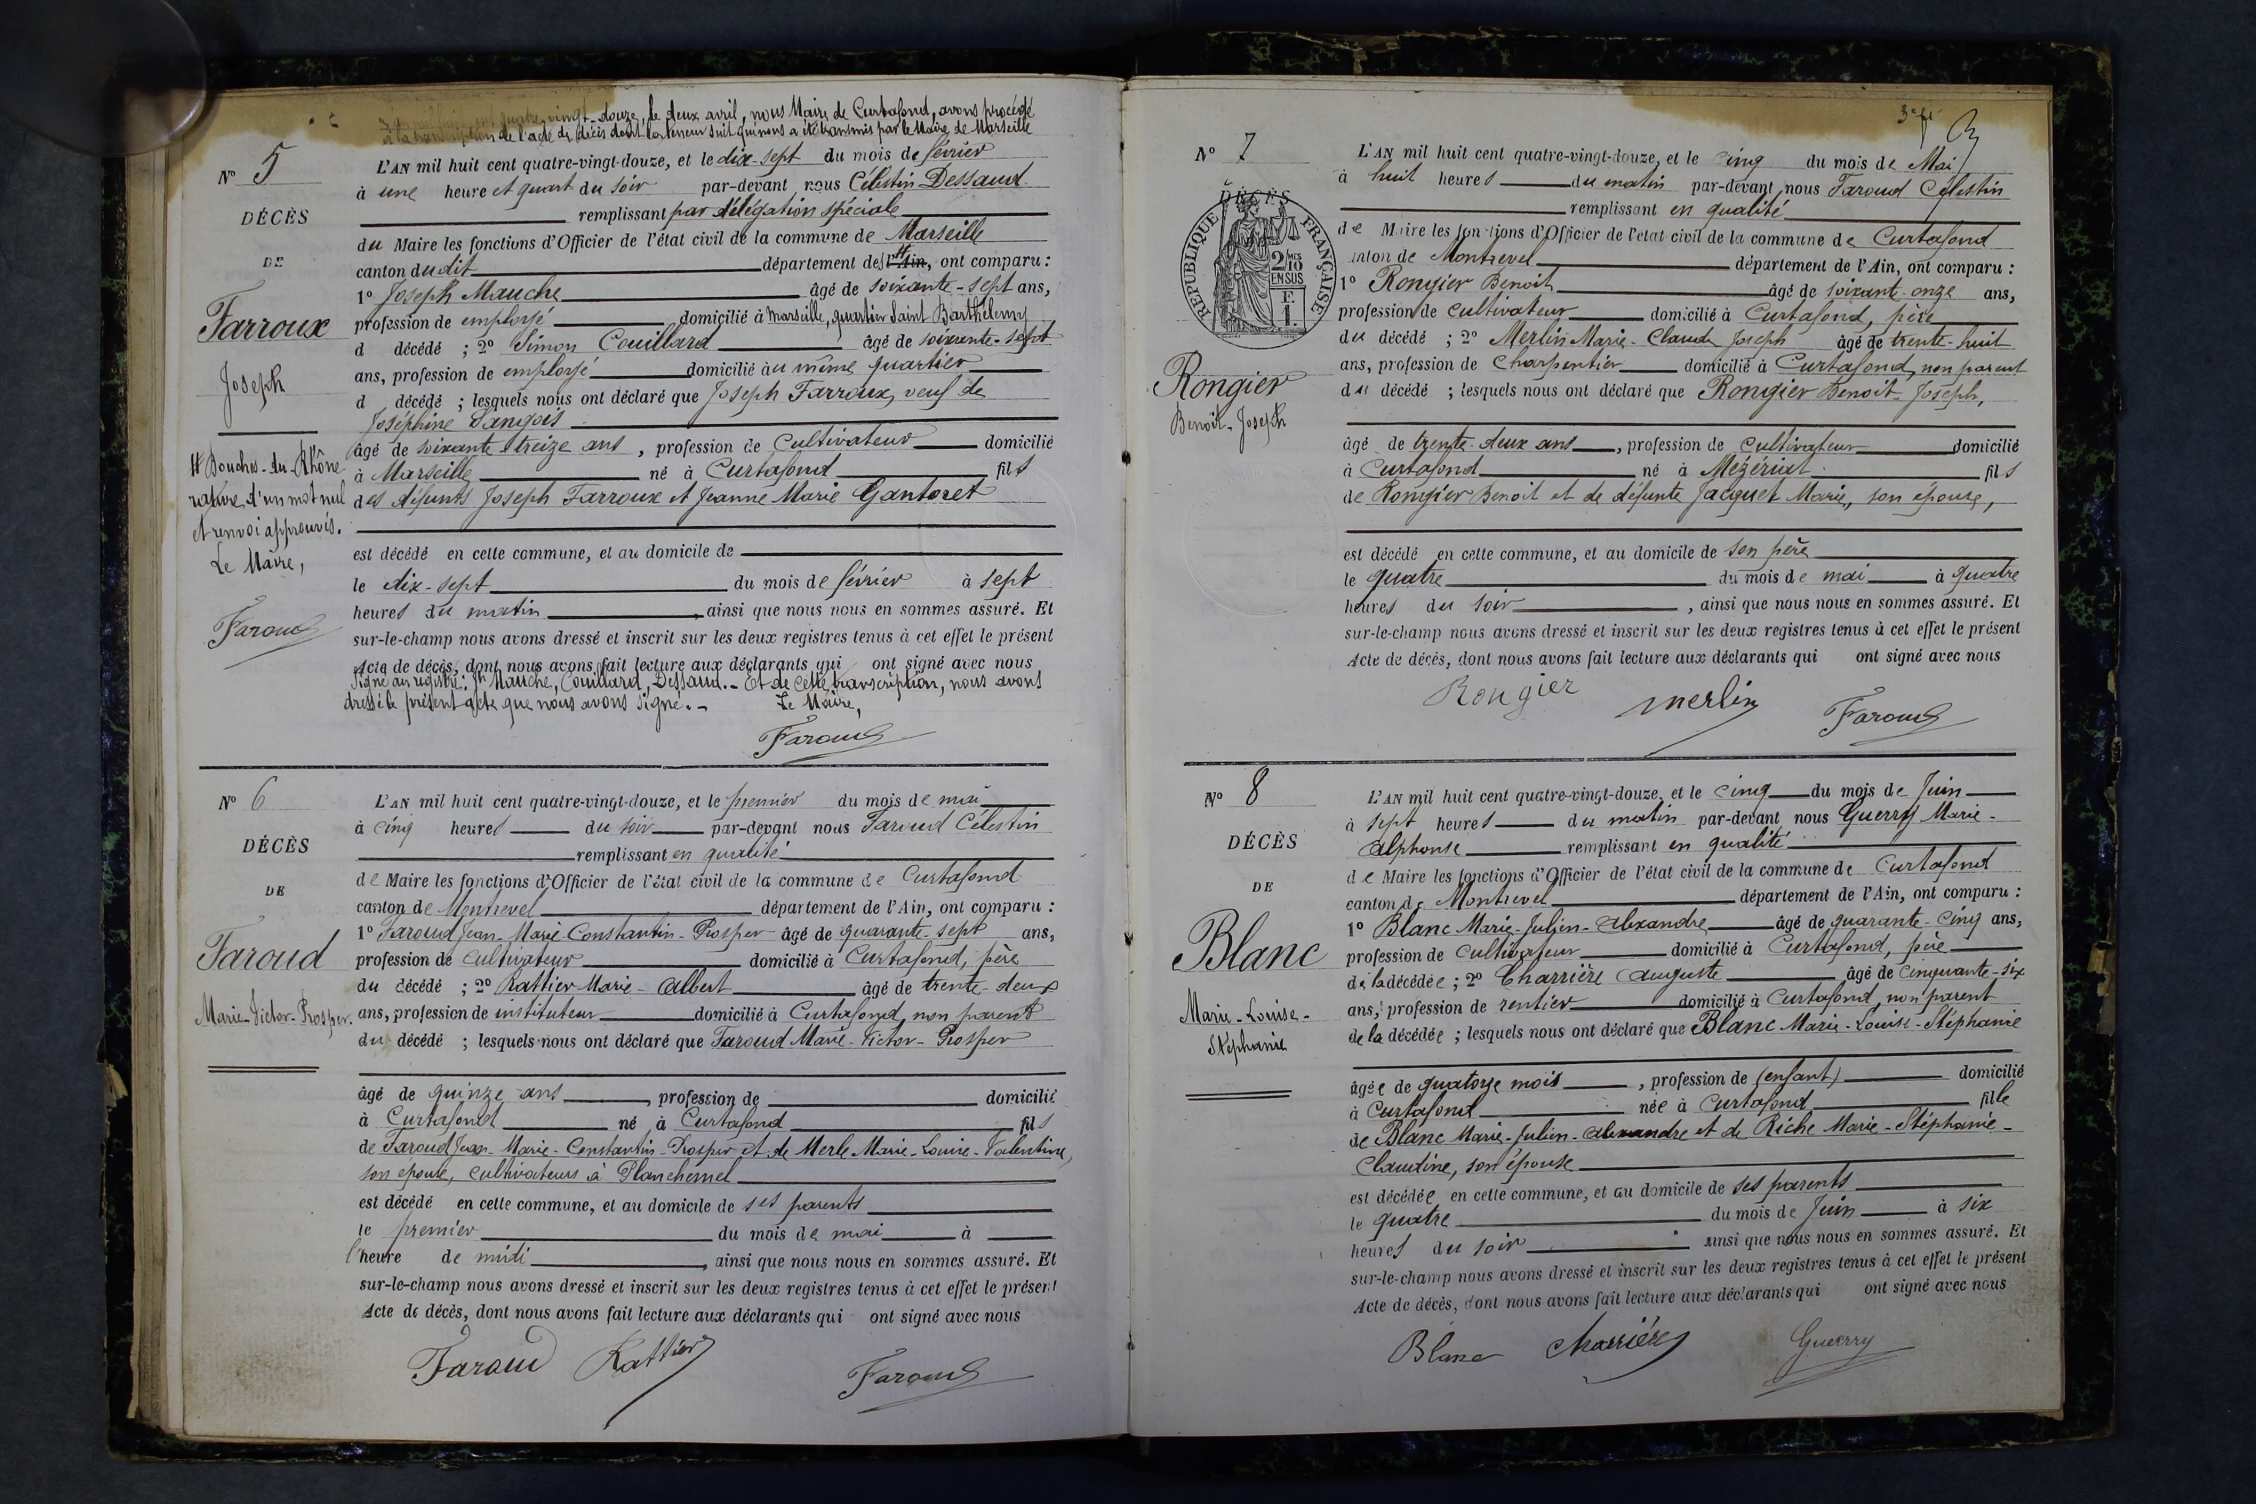 vingt-douze, le deux avril, nous Maire de Curtafond, avons procédé
de l'acte de décès dont la teneur suit qui nous a été transmis par le Maire de Marseille
N° 5
L'AN mil huit cent quatre-vingt-douze, et le dix-sept du mois de février
à une heure et quart du soir par-devant nous Célestin Dessaud
DÉCÈS
remplissant par délégation spéciale
du Maire les fonctions d'Officier de l'état civil de la commune de Marseille
DE
canton dudit département des # l'Ain, ont comparu :
1° Joseph Mauche âgé de soixante-sept ans,
Farroux
profession de employé domicilié à Marseille, quartier Saint Barthélemy
d décédé ; 2° Simon Couillard âgé de soixante-sept
Joseph
ans, profession de employé domicilié au même quartier
d décédé ; lesquels nous ont déclaré que Joseph Farroux, veuf de
Joséphine Sangois
âgé de soixante treize ans, profession de Cultivateur domicilié
# Bouches-du-Rhône
à Marseille né à Curtafond fils
rature d'un mot nul
des défunts Joseph Farroux et Jeanne Marie Gantoret
et renvoi approuvés.
est décédé en cette commune, et au domicile de
Le Maire,
le dix-sept du mois de février à sept
heures du matin, ainsi que nous nous en sommes assuré. Et
Faroud
sur-le-champ nous avons dressé et inscrit sur les deux registres tenus à cet effet le présent
Acte de décès, dont nous avons fait lecture aux déclarants qui ont signé avec nous
Signé au registre : Jh Mauche, Couillard, Dessaud. - Et de cette transcription, nous avons
dressé le présent acte que nous avons signé. - Le Maire,
Faroud
N° 6
L'AN mil huit cent quatre-vingt-douze, et le premier du mois de mai
à cinq heures du soir par-devant nous Faroud Célestin
DÉCÈS
remplissant en qualité
de Maire les fonctions d'Officier de l'état civil de la commune de Curtafond
DE
canton de Montrevel département de l'Ain, ont comparu :
1° Faroud Jean-Marie Constantin-Prosper âgé de quarante-sept ans,
Faroud
profession de cultivateur domicilié à Curtafond, père
du décédé ; 2° Rattier Marie-Albert âgé de trente-deux
Marie-Victor-Prosper.
ans, profession de instituteur domicilié à Curtafond, non parent
du décédé ; lesquels nous ont déclaré que Faroud Marie-Victor-Prosper
âgé de quinze ans, profession de domicilié
à Curtafond né à Curtafond fils
de Faroud Jean-Marie-Constantin-Prosper et de Merle Marie-Louise-Valentine,
son épouse, cultivateurs à Planchemel
est décédé en cette commune, et au domicile de ses parents
le premier du mois de mai à
l'heure de midi, ainsi que nous nous en sommes assuré. Et
sur-le-champ nous avons dressé et inscrit sur les deux registres tenus à cet effet le présent
Acte de décès, dont nous avons fait lecture aux déclarants qui ont signé avec nous
Faroud Rattier Faroud
N° 7
L'AN mil huit cent quatre-vingt-douze, et le cinq du mois de Mai
à huit heures du matin par-devant nous Faroud Célestin
DÉCÈS
remplissant en qualité
RÉPUBLIQUE FRANÇAISE
2/10 EN SUS
de Maire les fonctions d'Officier de l'état civil de la commune de Curtafond
canton de Montrevel département de l'Ain, ont comparu :
1° Rongier Benoit âgé de soixante-onze ans,
profession de cultivateur domicilié à Curtafond, père
du décédé ; 2° Merlin Marie-Claude Joseph âgé de trente-huit
ans, profession de Charpentier domicilié à Curtafond, non parent
Rongier
du décédé ; lesquels nous ont déclaré que Rongier Benoit-Joseph,
Benoit-Joseph
âgé de trente-deux ans, profession de cultivateur domicilié
à Curtafond né à Mézériat fils
de Rongier Benoit et de défunte Jacquet Marie, son épouse,
est décédé en cette commune, et au domicile de son père
le quatre du mois de mai à quatre
heures du soir, ainsi que nous nous en sommes assuré. Et
sur-le-champ nous avons dressé et inscrit sur les deux registres tenus à cet effet le présent
Acte de décès, dont nous avons fait lecture aux déclarants qui ont signé avec nous
Rongier merlin Faroud
N° 8
L'AN mil huit cent quatre-vingt-douze, et le cinq du mois de Juin
à sept heures du matin par-devant nous Guerry Marie-
DÉCÈS
Alphonse remplissant en qualité
de Maire les fonctions d'Officier de l'état civil de la commune de Curtafond
DE
canton de Montrevel département de l'Ain, ont comparu :
1° Blanc Marie-Julien-Alexandre âgé de quarante-cinq ans,
Blanc
profession de cultivateur domicilié à Curtafond, père
de la décédée ; 2° Charrière Auguste âgé de cinquante-six
Marie-Louise-
ans, profession de rentier domicilié à Curtafond, non parent
Stéphanie
de la décédée ; lesquels nous ont déclaré que Blanc Marie-Louise-Stéphanie
âgée de quatorze mois, profession de (enfant) domicilié
à Curtafond née à Curtafond fille
de Blanc Marie-Julien-Alexandre et de Riche Marie-Stéphanie-
Claudine, son épouse
est décédée en cette commune, et au domicile de ses parents
le quatre du mois de Juin à six
heures du soir ainsi que nous nous en sommes assuré. Et
sur-le-champ nous avons dressé et inscrit sur les deux registres tenus à cet effet le présent
Acte de décès, dont nous avons fait lecture aux déclarants qui ont signé avec nous
Blanc Charrière Guerry